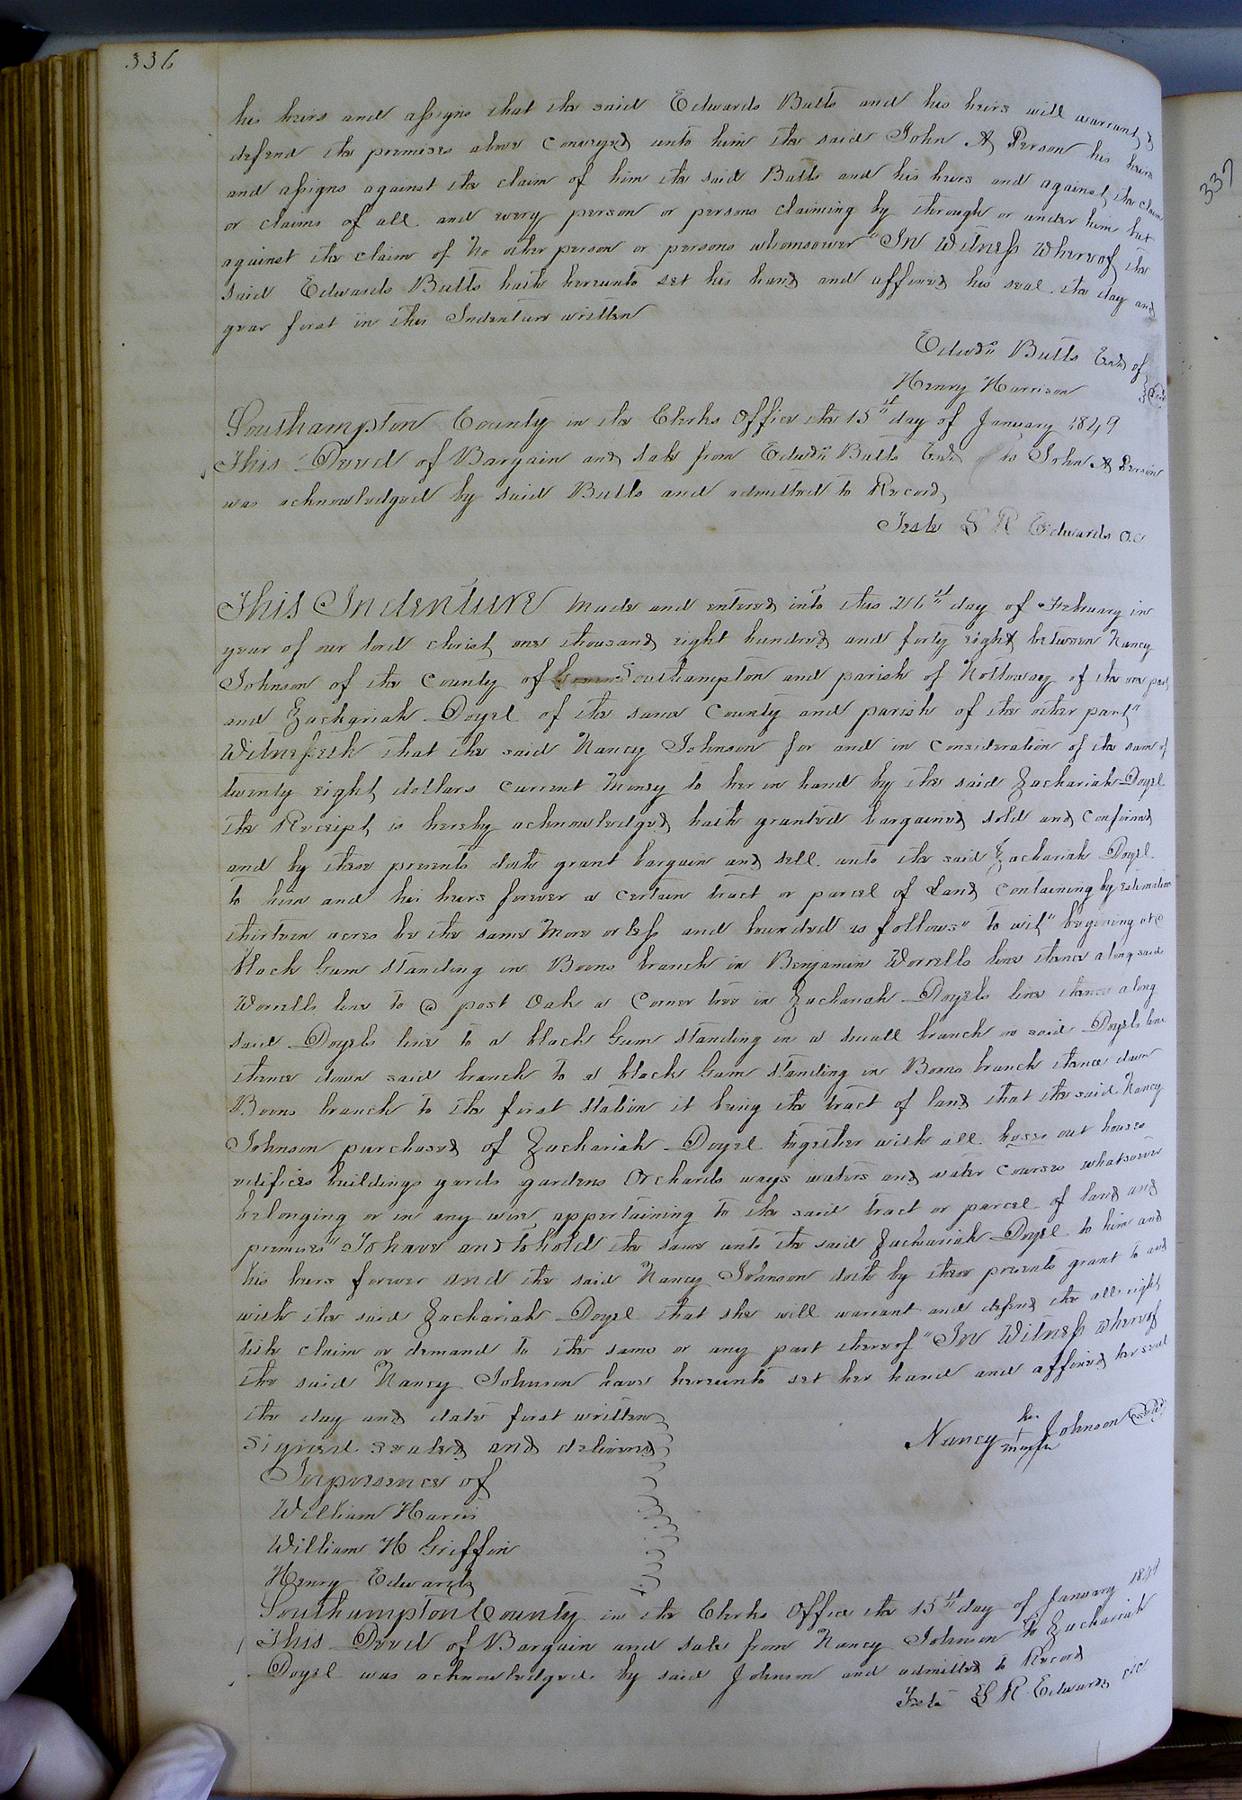 336
337
his heirs and assigns that the said Edwards Butts and his heirs will warrant &
defend the premises above conveyed unto him the said John A Person his heirs
and assigns against the claim of him the said Butts and his heirs and against the claim
or claims of all and every person or persons claiming by through or under him but
against the claim of No other person or persons whomsoever "In Witness Whereof the
said Edwards Butts hath hereunto set his hand and affixed his seal the day and
year first in this Indenture written
Edwds Butts Exd of
Henry Harrison
Southampton County in the Clerks Office the 15th day of January 1849
This Deed of Bargain and sale from Edwds Butts Exd to John A Person
was acknowledged by said Butts and admitted to Record,
Teste L R Edwards cc
This Indenture Made and entered into this 26th day of February in
year of our lord christ one thousand eight hundred and forty eight between Nancy
Johnson of the County of Southampton and parish of Nottoway of the one part
and Zachariah Doyel of the same County and parish of the other part"
Witnesseth that the said Nancy Johnson for and in Consideration of the sum of
twenty eight dollars Current Money to her in hand by the said Zachariah Doyel
the Receipt is hereby acknowledged hath granted bargained sold and Confirmed
and by these presents doth grant bargain and sell unto the said Zachariah Doyel
to him and his heirs forever a certain tract or parcel of Land Containing by estimation
thirteen acres be the same More or less and bounded as follows" to wit" begining at a
black Gum standing in Boons branch in Benjamin Worrells line thence along said
Worrells line to a post Oak a Corner tree in Zachariah Doyels line thence along
said Doyels line to a black Gum standing in a small branch in said Doyels line
thence down said branch to a black Gum standing in Boons branch thence down
Boons branch to the first station it being the tract of land that the said Nancy
Johnson purchased of Zachariah Doyel together with all houses out houses
edifices buildings yards gardens Orchards ways waters and water Courses whatsoever
belonging or in any wise appertaining to the said tract or parcel of land and
premises" To have and to hold the same unto the said Zachariah Doyel to him and
his heirs forever and the said Nancy Johnson doth by these presents grant to and
with the said Zachariah Doyel that she will warrant and defend the all right
title claim or demand to the same or any part thereof "In Witness whereof
the said Nancy Johnson have hereunto set her hand and affixed her seal
the day and date first written
Signed sealed and delivered
In presence of
Nancy her + mark Johnson Seal
William Harris
William H Griffin
Henry Edwards
Southampton County in the Clerks Office the 15th day of January 1849
This Deed of Bargain and sale from Nancy Johnson to Zachariah
Doyel was acknowledged by said Johnson and admitted to Record
Teste L R Edwards cc